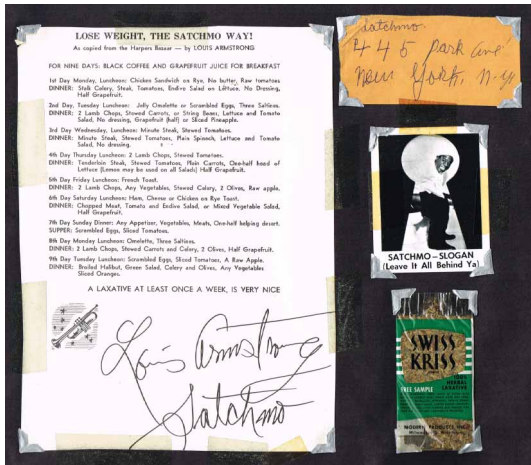 LOSE WEIGHT, THE SATCHMO WAY!
As copied from the Harpers Bazaar — by LOUIS ARMSTRONG
FOR NINE DAYS: BLACK COFFEE AND GRAPEFRUIT JUICE FOR BREAKFAST
1st Day Monday, Luncheon: Chicken Sandwich on Rye, No butter, Raw tomatoes
DINNER: Stalk Celery, Steak, Tomatoes, Endive Salad on Lettuce, No Dressing,
Half Grapefruit.
2nd Day, Tuesday Luncheon: Jelly Omelette or Scrambled Eggs, Three Saltines.
DINNER: 2 Lamb Chops, Stewed Carrots, or String Beans, Lettuce and Tomato
Salad, No dressing, Grapefruit (half) or Sliced Pineapple.
3rd Day Wednesday, Luncheon: Minute Steak, Stewed Tomatoes.
DINNER: Minute Steak, Stewed Tomatoes, Plain Spinach, Lettuce and Tomato
Salad, No dressing.
4th Day Thursday Luncheon: 2 Lamb Chops, Stewed Tomatoes.
DINNER: Tenderloin Steak, Stewed Tomatoes, Plain Carrots, One-half head of
Lettuce (Lemon may be used on all Salads) Half Grapefruit.
5th Day Friday Luncheon: French Toast.
DINNER: 2 Lamb Chops, Any Vegetables, Stewed Celery, 2 Olives, Raw apple.
6th Day Saturday Luncheon: Ham, Cheese or Chicken on Rye Toast.
DINNER: Chopped Meat, Tomato and Endive Salad, or Mixed Vegetable Salad,
Half Grapefruit.
7th Day Sunday Dinner: Any Appetizer, Vegetables, Meats, One-half helping desert.
SUPPER: Scrambled Eggs, Sliced Tomatoes.
8th Day Monday Luncheon: Omelette, Three Saltines.
DINNER: 2 Lamb Chops, Stewed Carrots and Celery, 2 Olives, Half Grapefruit.
9th Day Tuesday Luncheon: Scrambled Eggs, Sliced Tomatoes, A Raw Apple.
DINNER: Broiled Halibut, Green Salad, Celery and Olives, Any Vegetables
Sliced Oranges.
A LAXATIVE AT LEAST ONCE A WEEK, IS VERY NICE
Louis Armstrong
Satchmo
Satchmo
445 Park Ave
New York, N.Y.
SATCHMO – SLOGAN
(Leave It All Behind Ya)
SWISS
KRISS
HERBAL
LAXATIVE
FREE SAMPLE
MODERN PRODUCTS, INC.